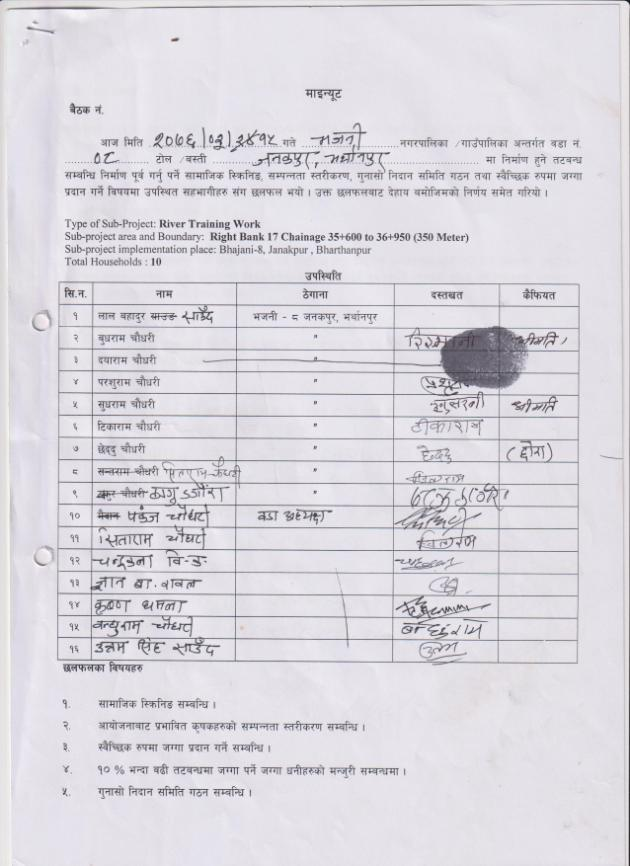 माइन्यूट
बैठक नं.
आज मिति २०७६/०३/ गते भजनी नगरपालिका /गाउँपालिका अन्तर्गत वडा नं.
०८ टोल /बस्ती जनकपुर, भर्थानपुर मा निर्माण हुने तटबन्ध
सम्बन्धि निर्माण पूर्व गर्नु पर्ने सामाजिक स्किनिङ, सम्पन्नता स्तरीकरण, गुनासो निदान समिति गठन तथा स्वैच्छिक रुपमा जग्गा
प्रदान गर्ने विषयमा उपस्थित सहभागीहरु संग छलफल भयो । उक्त छलफलबाट देहाय बमोजिमको निर्णय समेत गरियो ।
Type of Sub-Project: River Training Work
Sub-project area and Boundary: Right Bank 17 Chainage 35+600 to 36+950 (350 Meter)
Sub-project implementation place: Bhajani-8, Janakpur , Bharthanpur
Total Households : 10
उपस्थिति
सि.न. नाम ठेगाना दस्तखत कैफियत
१ लाल बहादुर साउँद भजनी - ८ जनकपुर, भर्थानपुर
२ बुधराम चौधरी " श्रीमति
३ दयाराम चौधरी "
४ परशुराम चौधरी "
५ सुधराम चौधरी " श्रीमति
६ टिकाराम चौधरी " टीकाराम
७ छेद्दु चौधरी " छेद्दु (छोरा)
८ सन्तराम चौधरी सिताराम चौधरी "
९ चौधरी "
१० पंकज चौधरी वडा अध्यक्ष
११ सिताराम चौधरी
१२ वि.क.
१३ ज्ञान ब. रावल
१४ कृष्ण
१५ बन्धुराम चौधरी
१६ उत्तम सिंह साउँद उत्तम
छलफलका बिषयहरु
१. सामाजिक स्किनिङ सम्बन्धि ।
२. आयोजनाबाट प्रभावित कृषकहरुको सम्पन्नता स्तरीकरण सम्बन्धि ।
३. स्वैच्छिक रुपमा जग्गा प्रदान गर्ने सम्बन्धि ।
४. १० % भन्दा बढी तटबन्धमा जग्गा पर्ने जग्गा धनीहरुको मन्जुरी सम्बन्धमा ।
५. गुनासो निदान समिति गठन सम्बन्धि ।